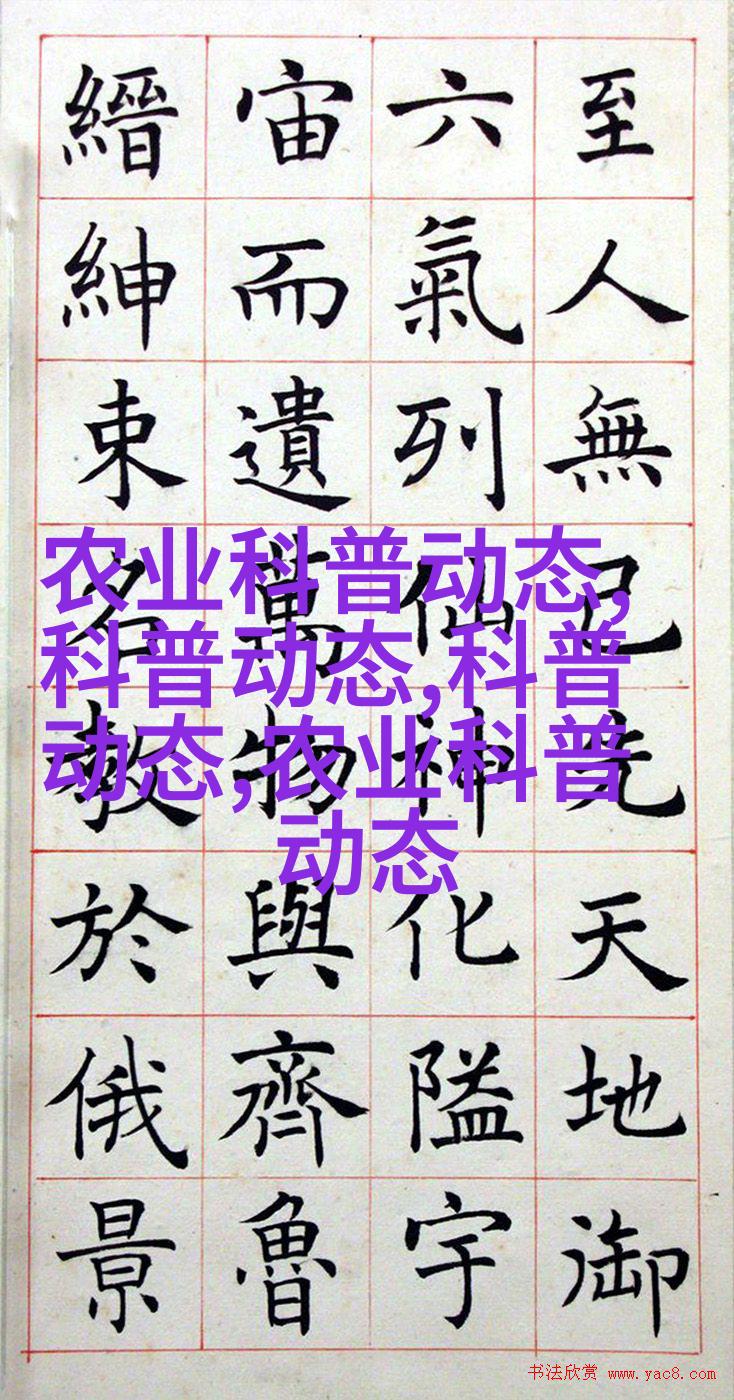 至人無己先天地御
六氣列仙神化隘宇
宙而遺萬物與齊魯
縉紳束名教於俄景
农业科普动态,
科普动态,科普
动态,农业科普
动态
书法欣赏 www.yac8.com